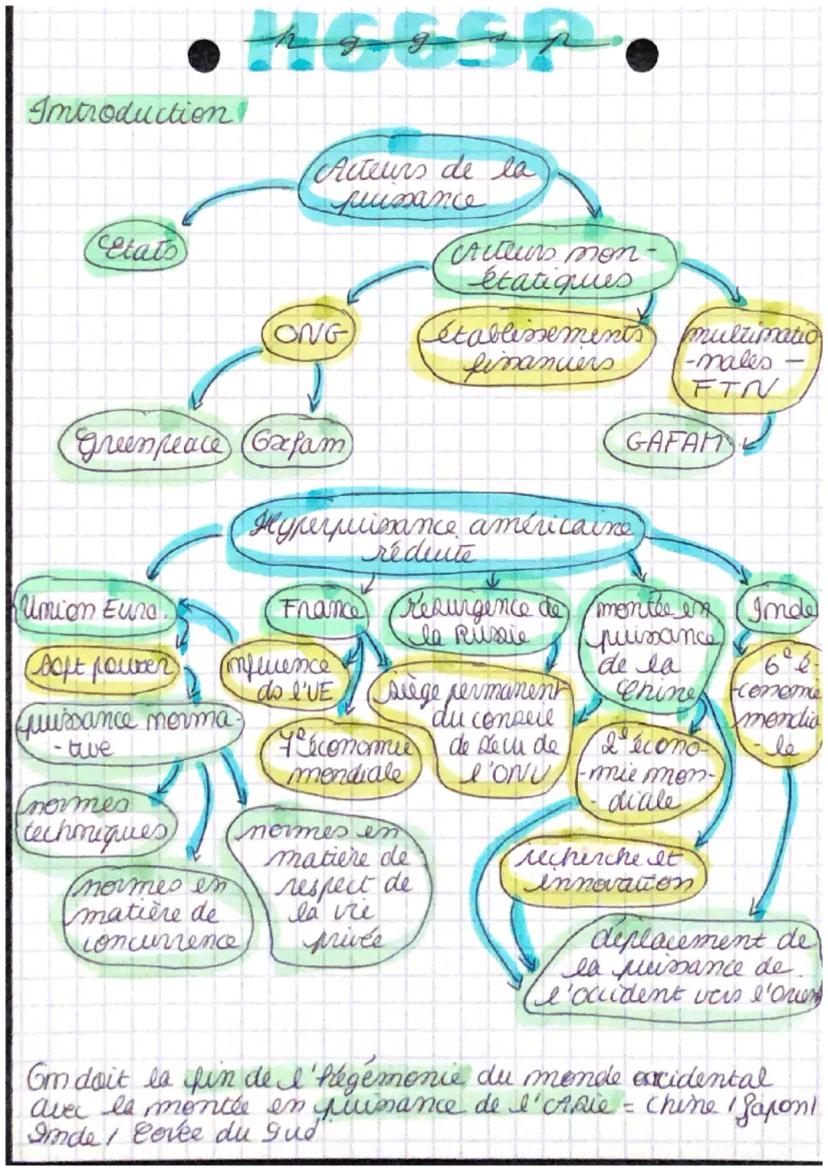 HGGSP
hggsp
Introduction
Acteurs de la
puissance
Etats
Acteurs non-
étatiques
ONG
établissements
financiers
multinatio
-nales –
FTN
Greenpeace
Oxfam
GAFAM
Hyperpuissance américaine
réduite
Union Euro.
France
Résurgence de
la Russie
montée en
puissance
de la
Chine
Inde
soft power
influence
ds l'UE
siège permanent
du conseil
de sécu de
l'ONU
6e é-
conomie
mondia
-le
puissance norma-
-tive
7e économie
mondiale
2e écono-
-mie mon-
-diale
normes
techniques
normes en
matière de
respect de
la vie
privée
recherche et
innovation
normes en
matière de
concurrence
déplacement de
la puissance de
l'occident vers l'Orien
On doit la fin de l'hégémonie du monde occidental
avec la montée en puissance de l'Asie = Chine / Japon /
Inde / Corée du Sud